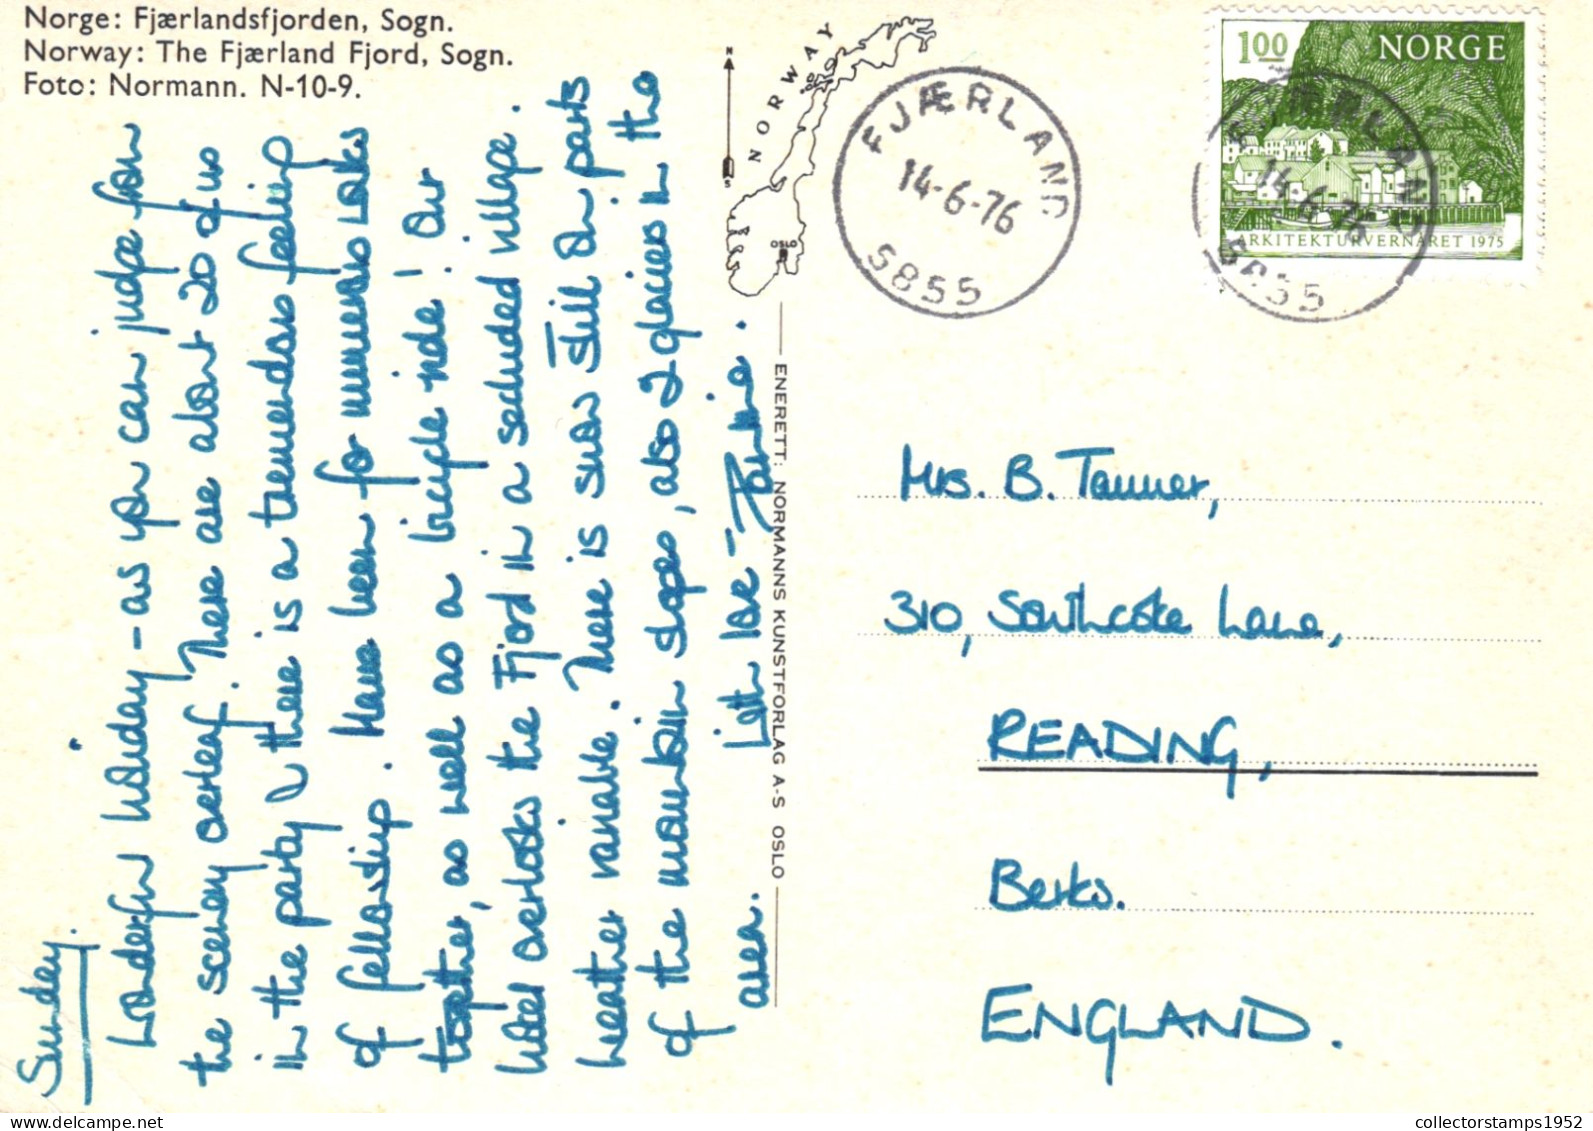 Norge: Fjærlandsfjorden, Sogn.
Norway: The Fjærland Fjord, Sogn.
Foto: Normann. N-10-9.
Sunday.
Wonderful holiday - as you can judge from
the scenery overleaf. There are about 20 of us
in the party & there is a tremendous feeling
of fellowship. Have been for numerous walks
together, as well as a bicycle ride! Our
hotel overlooks the Fjord in a secluded village.
Weather variable. There is snow still on parts
of the mountain slopes, also 2 glaciers in the
area. With love -
ENERETT: NORMANNS KUNSTFORLAG A-S OSLO
N
S
NORWAY
OSLO
FJÆRLAND
14-6-76
5855
100 NORGE
ARKITEKTURVERNÅRET 1975
FJÆRLAND
14-6-76
5855
Mrs. B. Tanner,
310, Southcote Lane,
READING,
Berks.
ENGLAND.
collectorstamps1952